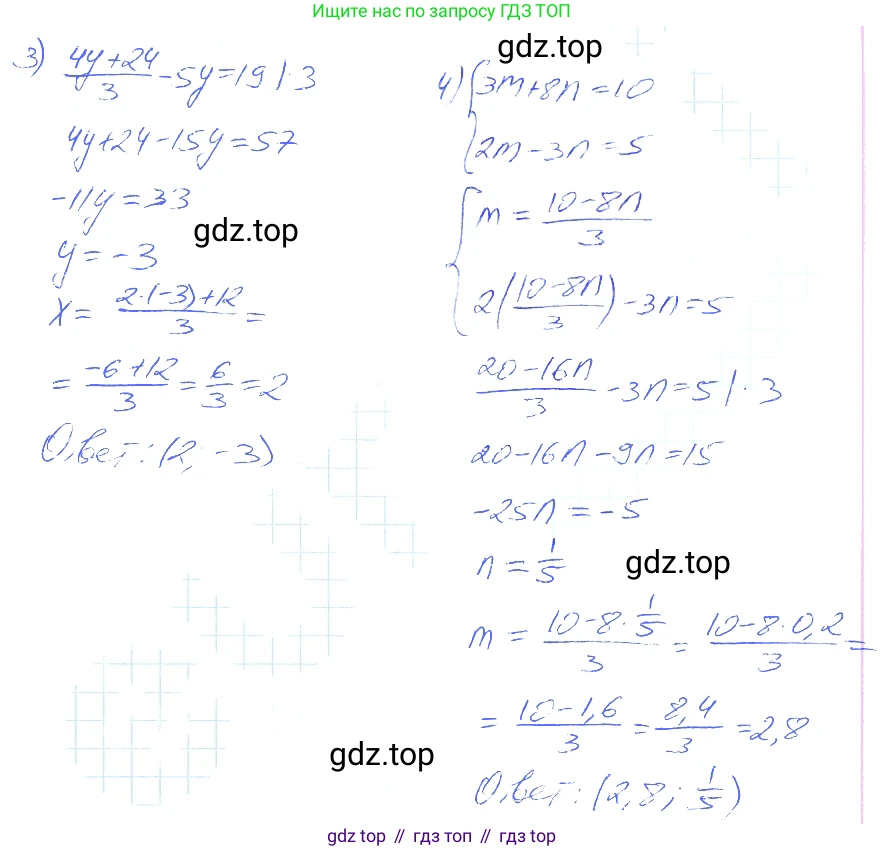 Ищите нас по запросу ГДЗ ТОП
3) (4y+24)/3 - 5y = 19 | · 3
4y+24-15y=57
-11y = 33
y = -3
x = (2·(-3)+12)/3 =
= (-6+12)/3 = 6/3 = 2
Ответ: (2; -3)
gdz.top
gdz.top
4) { 3m+8n = 10
2m-3n = 5
{ m = (10-8n)/3
2((10-8n)/3) - 3n = 5
(20-16n)/3 - 3n = 5 | · 3
20-16n-9n=15
-25n = -5
n = 1/5
gdz.top
m = (10-8·1/5)/3 = (10-8·0,2)/3 =
= (10-1,6)/3 = 8,4/3 = 2,8
gdz.top
Ответ: (2,8; 1/5)
gdz top // гдз топ // гдз top